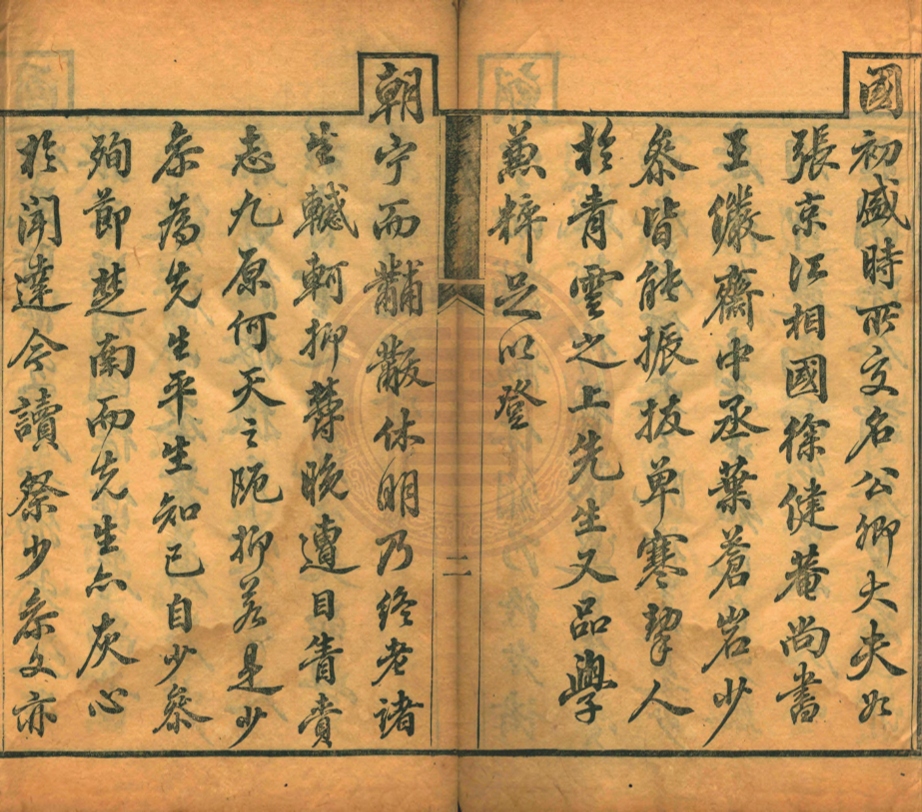 國初盛時所交名公卿大夫如
張京江相國徐健菴尚書
王儼齋中丞葉蒼岩少
叅皆能振拔单寒挈人
於青雲之上先生又品學
兼粹足以登
二
朝宁而黼黻休明乃終老諸
生轗軻抑欝晚遭目眚賫
志九原何天之阨抑若是少
叅為先生平生知己自少叅
殉節楚南而先生亦灰心
於聞達今讀祭少叅文亦